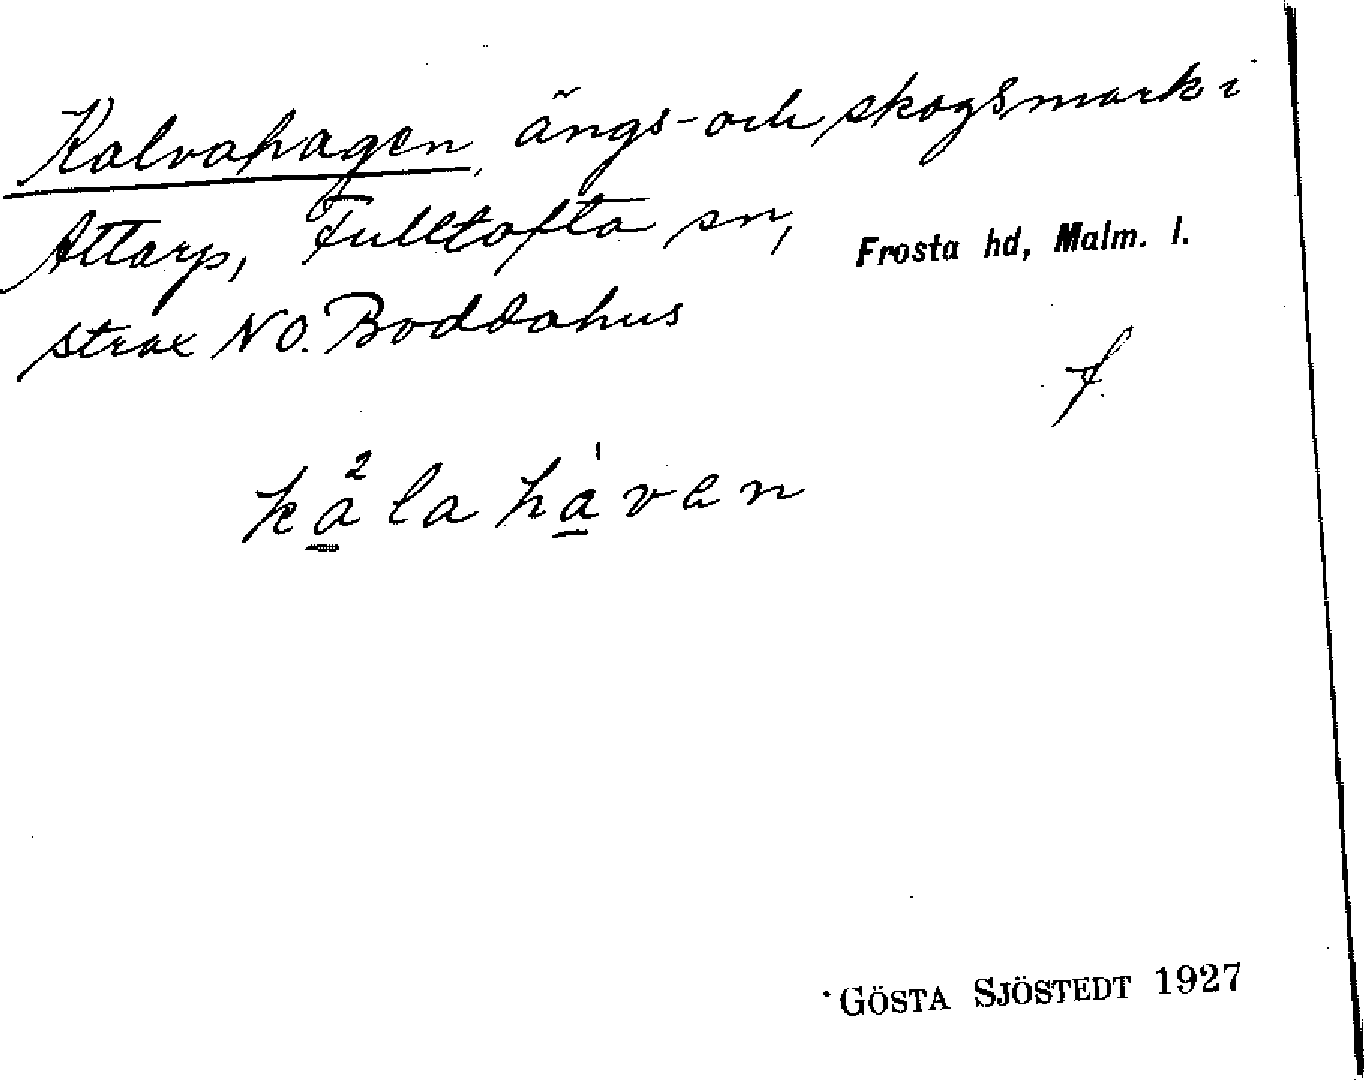 Kalvahagen, ängs- och skogsmark i
Attarp, Fulltofta sn, Frosta hd, Malm. l.
strax NO. Boddahus
f.
kå²la há¹ven
GÖSTA SJÖSTEDT 1927